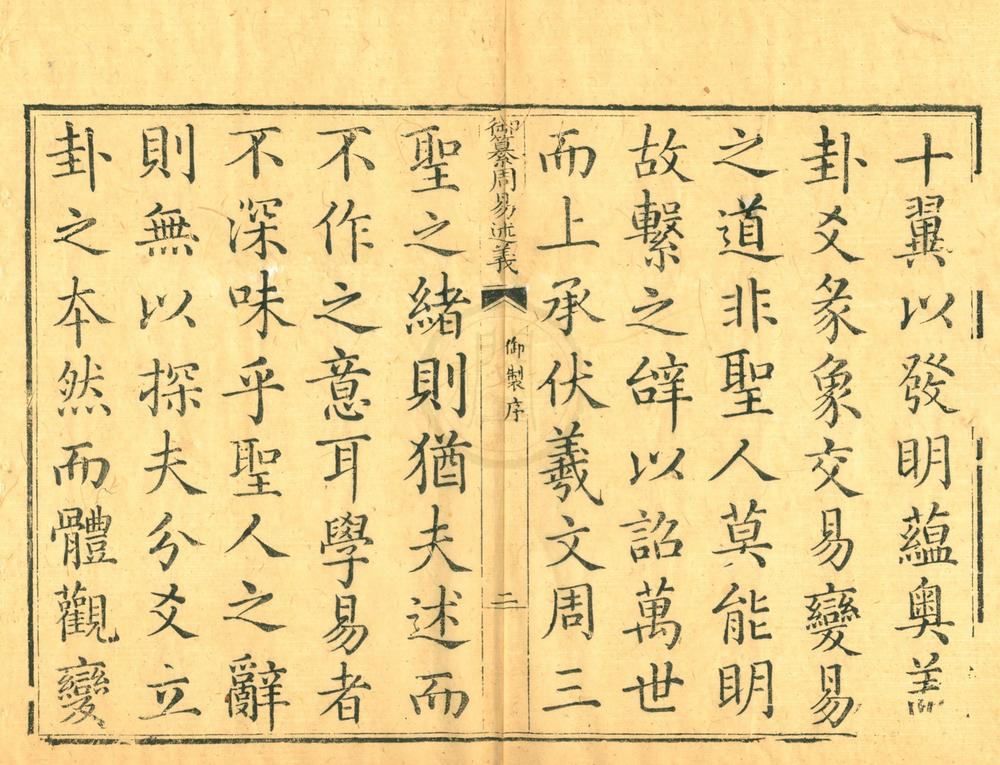 十翼以發明蘊奧盖
卦爻彖象交易變易
之道非聖人莫能明
故繫之辝以詔萬世
而上承伏羲文周三
御纂周易述義
御製序
二
聖之緒則猶夫述而
不作之意耳學易者
不深味乎聖人之辭
則無以探夫分爻立
卦之本然而體觀變